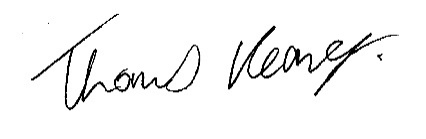 Thomas Kearney.